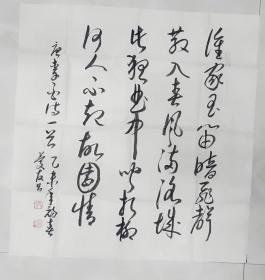 谁家玉笛暗飞声
散入春风满洛城
此夜曲中闻折柳
何人不起故园情
唐李白诗一首 乙未年初春